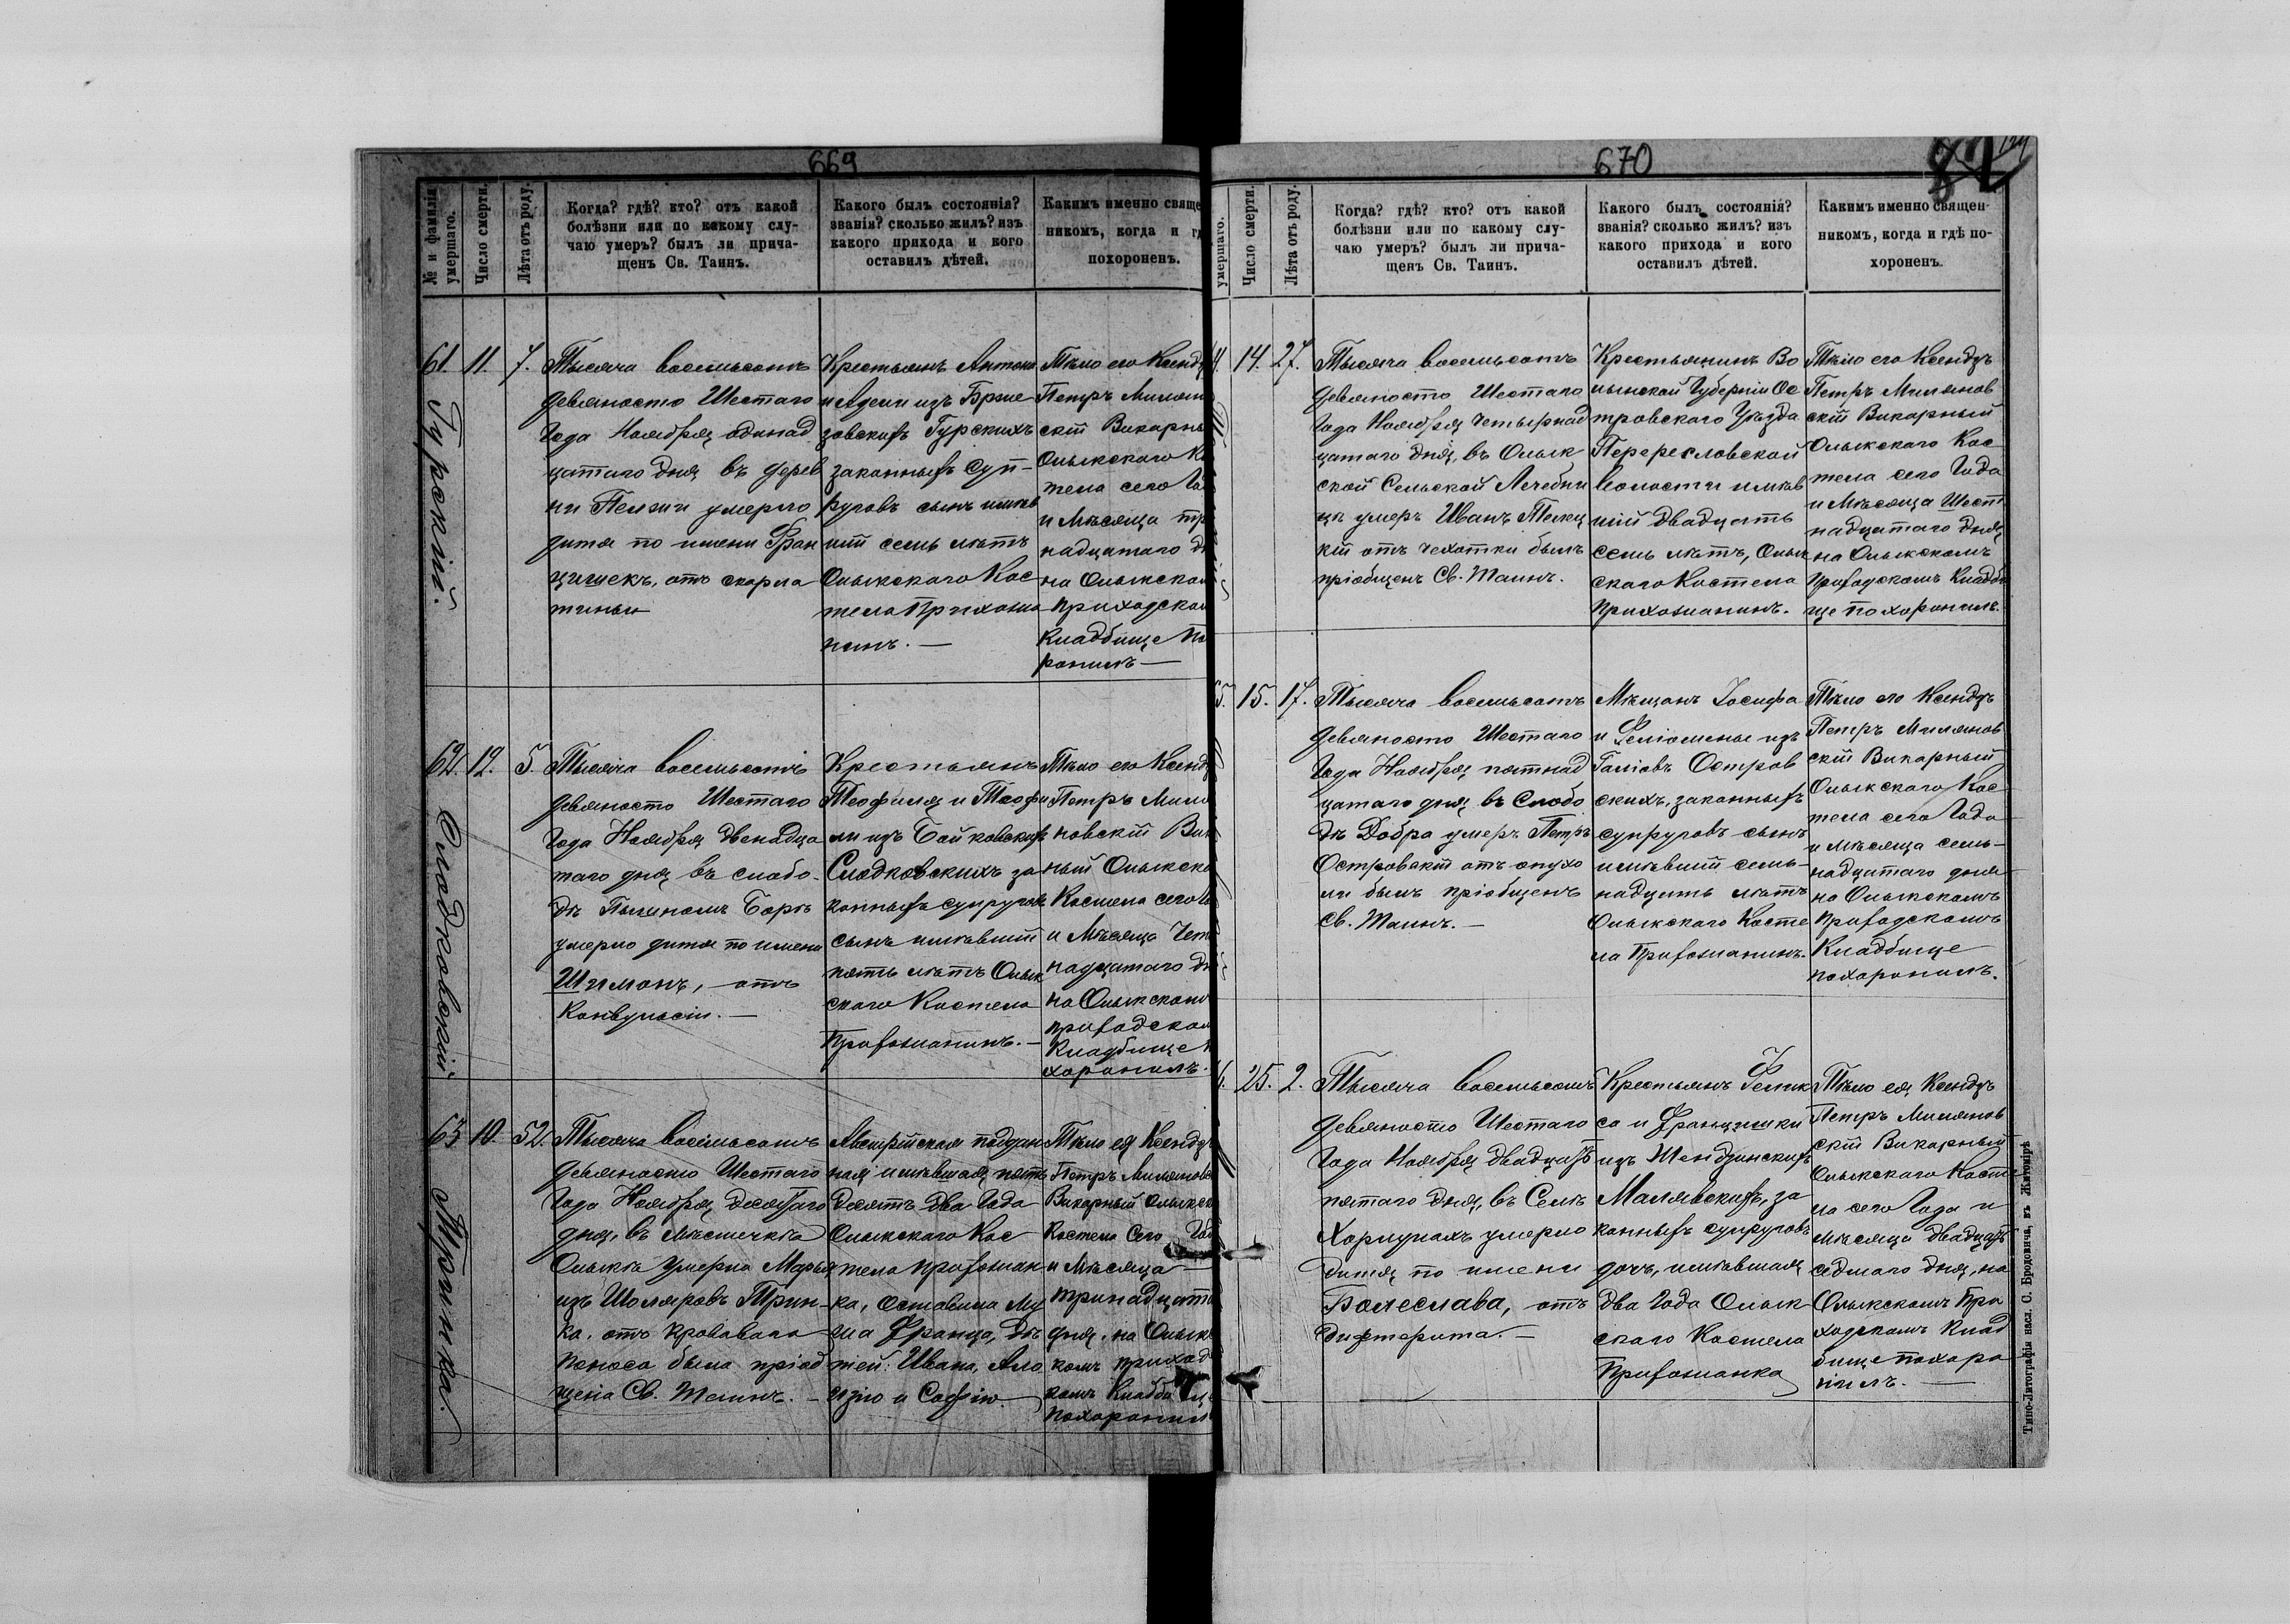 669
№ и фамилія умершаго.
Число смерти.
Лѣта отъ роду.
Когда? гдѣ? кто? отъ какой
болѣзни или по какому слу-
чаю умеръ? былъ ли прича-
щенъ Св. Таинъ.
Какого былъ состоянія?
званія? сколько жилъ? изъ
какого прихода и кого
оставилъ дѣтей.
Какимъ именно свяще
никомъ, когда и гд
похороненъ.
61.
Гурскій.
11.
7.
Тысяча восемьсотъ
девяносто Шестаго
Года Ноября одинад
цатаго дня въ дерев
ни Пелжи умерло
дитя по имени Фран
цишекъ, отъ скарла
тины
Крестьянъ Антона
и Адели изъ Брже
зовскихъ Гурскихъ
законныхъ Суп-
руговъ сынъ имѣв
шій семь лѣтъ
Олыкскаго Кос
тела Прихожа
нинъ. —
Тѣло его Ксендз
Петръ Милян
скій Викарны
Олыкскаго К
тела сего Го
и Мѣсяца тр
надцатаго д
на Олыкском
приходском
Кладбище по
ронилъ —
62.
Сладковскій.
12.
5.
Тысяча восемьсотъ
девяносто Шестаго
Года Ноября двенадца
таго дня въ слобо-
дѣ Пылиномъ Боркѣ
умерло дитя по имени
Шимонъ, — отъ
Конвульсіи. —
Крестьянъ
Теофиля и Теофи
ли изъ Байковскихъ
Сладковскихъ за
конныхъ супруговъ
сынъ имѣвшій
пять лѣтъ Олык
скаго Костела
Прихожанинъ. —
Тѣло его Ксендз
Петръ Миля
новскій Вик
ный Олыкска
Костела сего Го
и Мѣсяца Чет
надцатаго дн
на Олыкском
приходском
Кладбище п
хоронилъ.
63
Тринка.
10.
52.
Тысяча восемьсотъ
девяносто Шестаго
Года Ноября десятаго
дня, въ Мѣстечкѣ
Олыкѣ умерла Марья
изъ Шоляровъ Трин-
ка, отъ кроваваго
поноса была пріоб
щена Св. Таинъ. —
Австрійская поддан
ная имѣвшая пять
десятъ два Года
Олыкскаго Кос
тела прихожан
ка, Оставила Му
жа Франца, дѣ
тей: Ивана, Ало
изію и Софію.
Тѣло ея Ксендз
Петръ Милянов
Викарный Олыкск
Костела Сего Го
и Мѣсяца
тринадцата
дня, на Олык
комъ приход
комъ Кладби
похоронил
670
умершаго.
Число смерти.
Лѣта отъ роду.
Когда? гдѣ? кто? отъ какой
болѣзни или по какому слу-
чаю умеръ? былъ ли прича-
щенъ Св. Таинъ.
Какого былъ состоянія?
званія? сколько жилъ? изъ
какого прихода и кого
оставилъ дѣтей.
Какимъ именно священ-
никомъ, когда и гдѣ по-
хороненъ.
14.
27.
Тысяча восемьсотъ
девяносто Шестаго
Года Ноября четырнад
цатаго дня, въ Олык
ской Сельской Лечебни
цѣ умеръ Иванъ
кій отъ чехотки былъ
пріобщенъ Св. Таинъ.
Крестьянинъ Во
лынской Губерніи Ос
тровскаго Уѣзда
волости имѣв
шій двадцать
семь лѣтъ, Олык
скаго Костела
Прихожанинъ.
Тѣло его Ксендзъ
Петръ Милянов
скій Викарный
Олыкскаго Кос
тела сего Года
и Мѣсяца Шест
надцатаго дня
на Олыкскомъ
Приходскомъ Кладби
ще похоронилъ.
15.
17.
Тысяча восемьсотъ
девяносто Шестаго
Года Ноября пятнад
цатаго дня въ Слобо
дѣ Добра умеръ Петръ
Островскій отъ опухо
ли былъ пріобщенъ
Св. Таинъ. —
Мѣщанъ Іосифа
и Филомены изъ
Остров
скихъ, законныхъ
супруговъ сынъ
имѣвшій семь-
надцать лѣтъ
Олыкскаго Косте
ла Прихожанинъ.
Тѣло его Ксендзъ
Петръ Милянов
скій Викарный
Олыкскаго Кос
тела сего Года
и Мѣсяца семь-
надцатаго дня
на Олыкскомъ
Приходскомъ
Кладбище
похоронилъ.
25.
2.
Тысяча восемьсотъ
девяносто Шестаго
Года Ноября двадцать
пятаго дня, въ Селѣ
Хорлупахъ умерло
дитя по имени
Болеслава, отъ
дифтерита. —
Крестьянъ Фелик
са и Францишки
изъ Шендзинскихъ
Малявскихъ, за
конныхъ супруговъ
дочь, имѣвшая
два Года Олык
скаго Костела
Прихожанка
Тѣло ея Ксендзъ
Петръ Милянов
скій Викарный
Олыкскаго Косте
ла сего Года и
Мѣсяца двадцать
седмаго дня, на
Олыкскомъ При
ходскомъ Клад
бище похоро
нилъ. —
Типо-Литографія насл. С. Бродовича, въ Житомірѣ